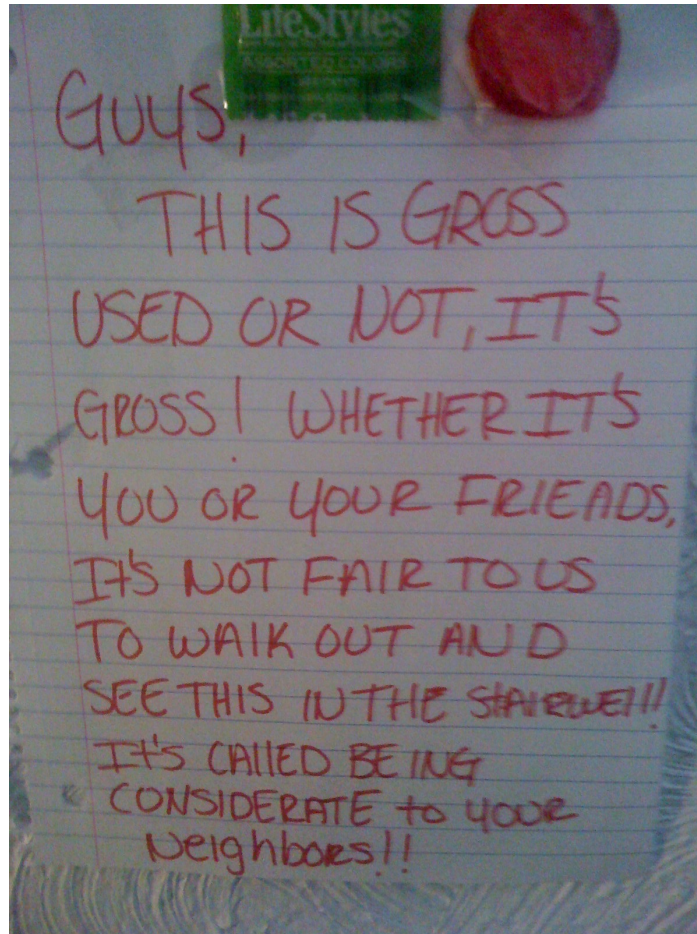 LifeStyles
ASSORTED COLORS
GUYS,
THIS IS GROSS
USED OR NOT, IT'S
GROSS! WHETHER IT'S
YOU OR YOUR FRIEADS,
It'S NOT FAIR TO US
TO WAlK OUT AND
SEE THIS IN THE STAIRWEll!
It'S CAllED BEING
CONSIDERATE to YOUR
NeighboRS!!